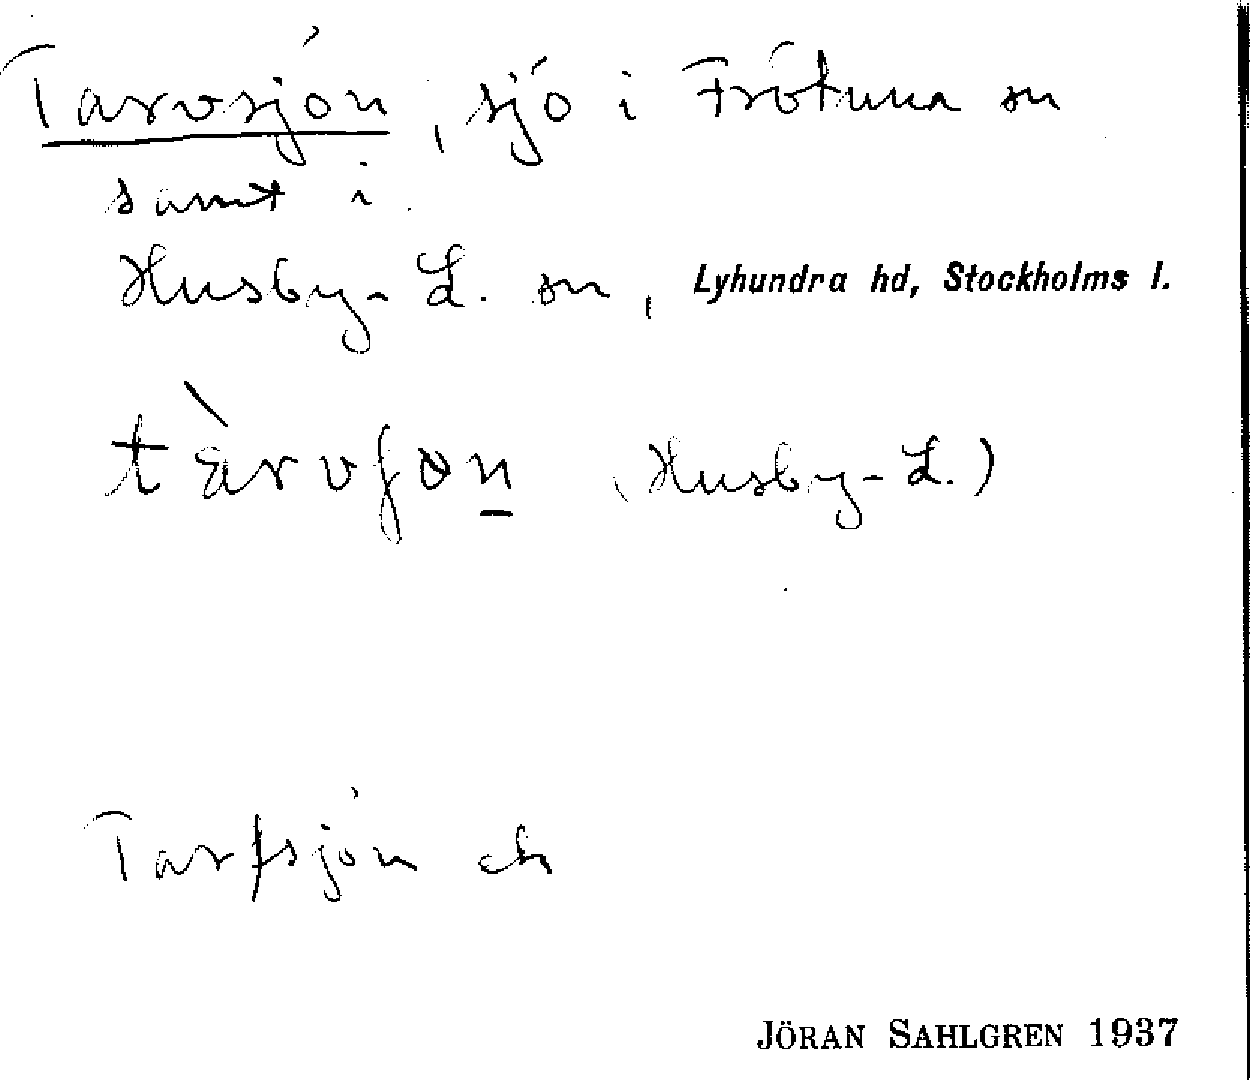 Tarvsjön, sjö i Frötuna sn
samt i
Husby-L. sn, Lyhundra hd, Stockholms l.
tàrvʃøn (Husby-L.)
Tarfsjön ek
JÖRAN SAHLGREN 1937